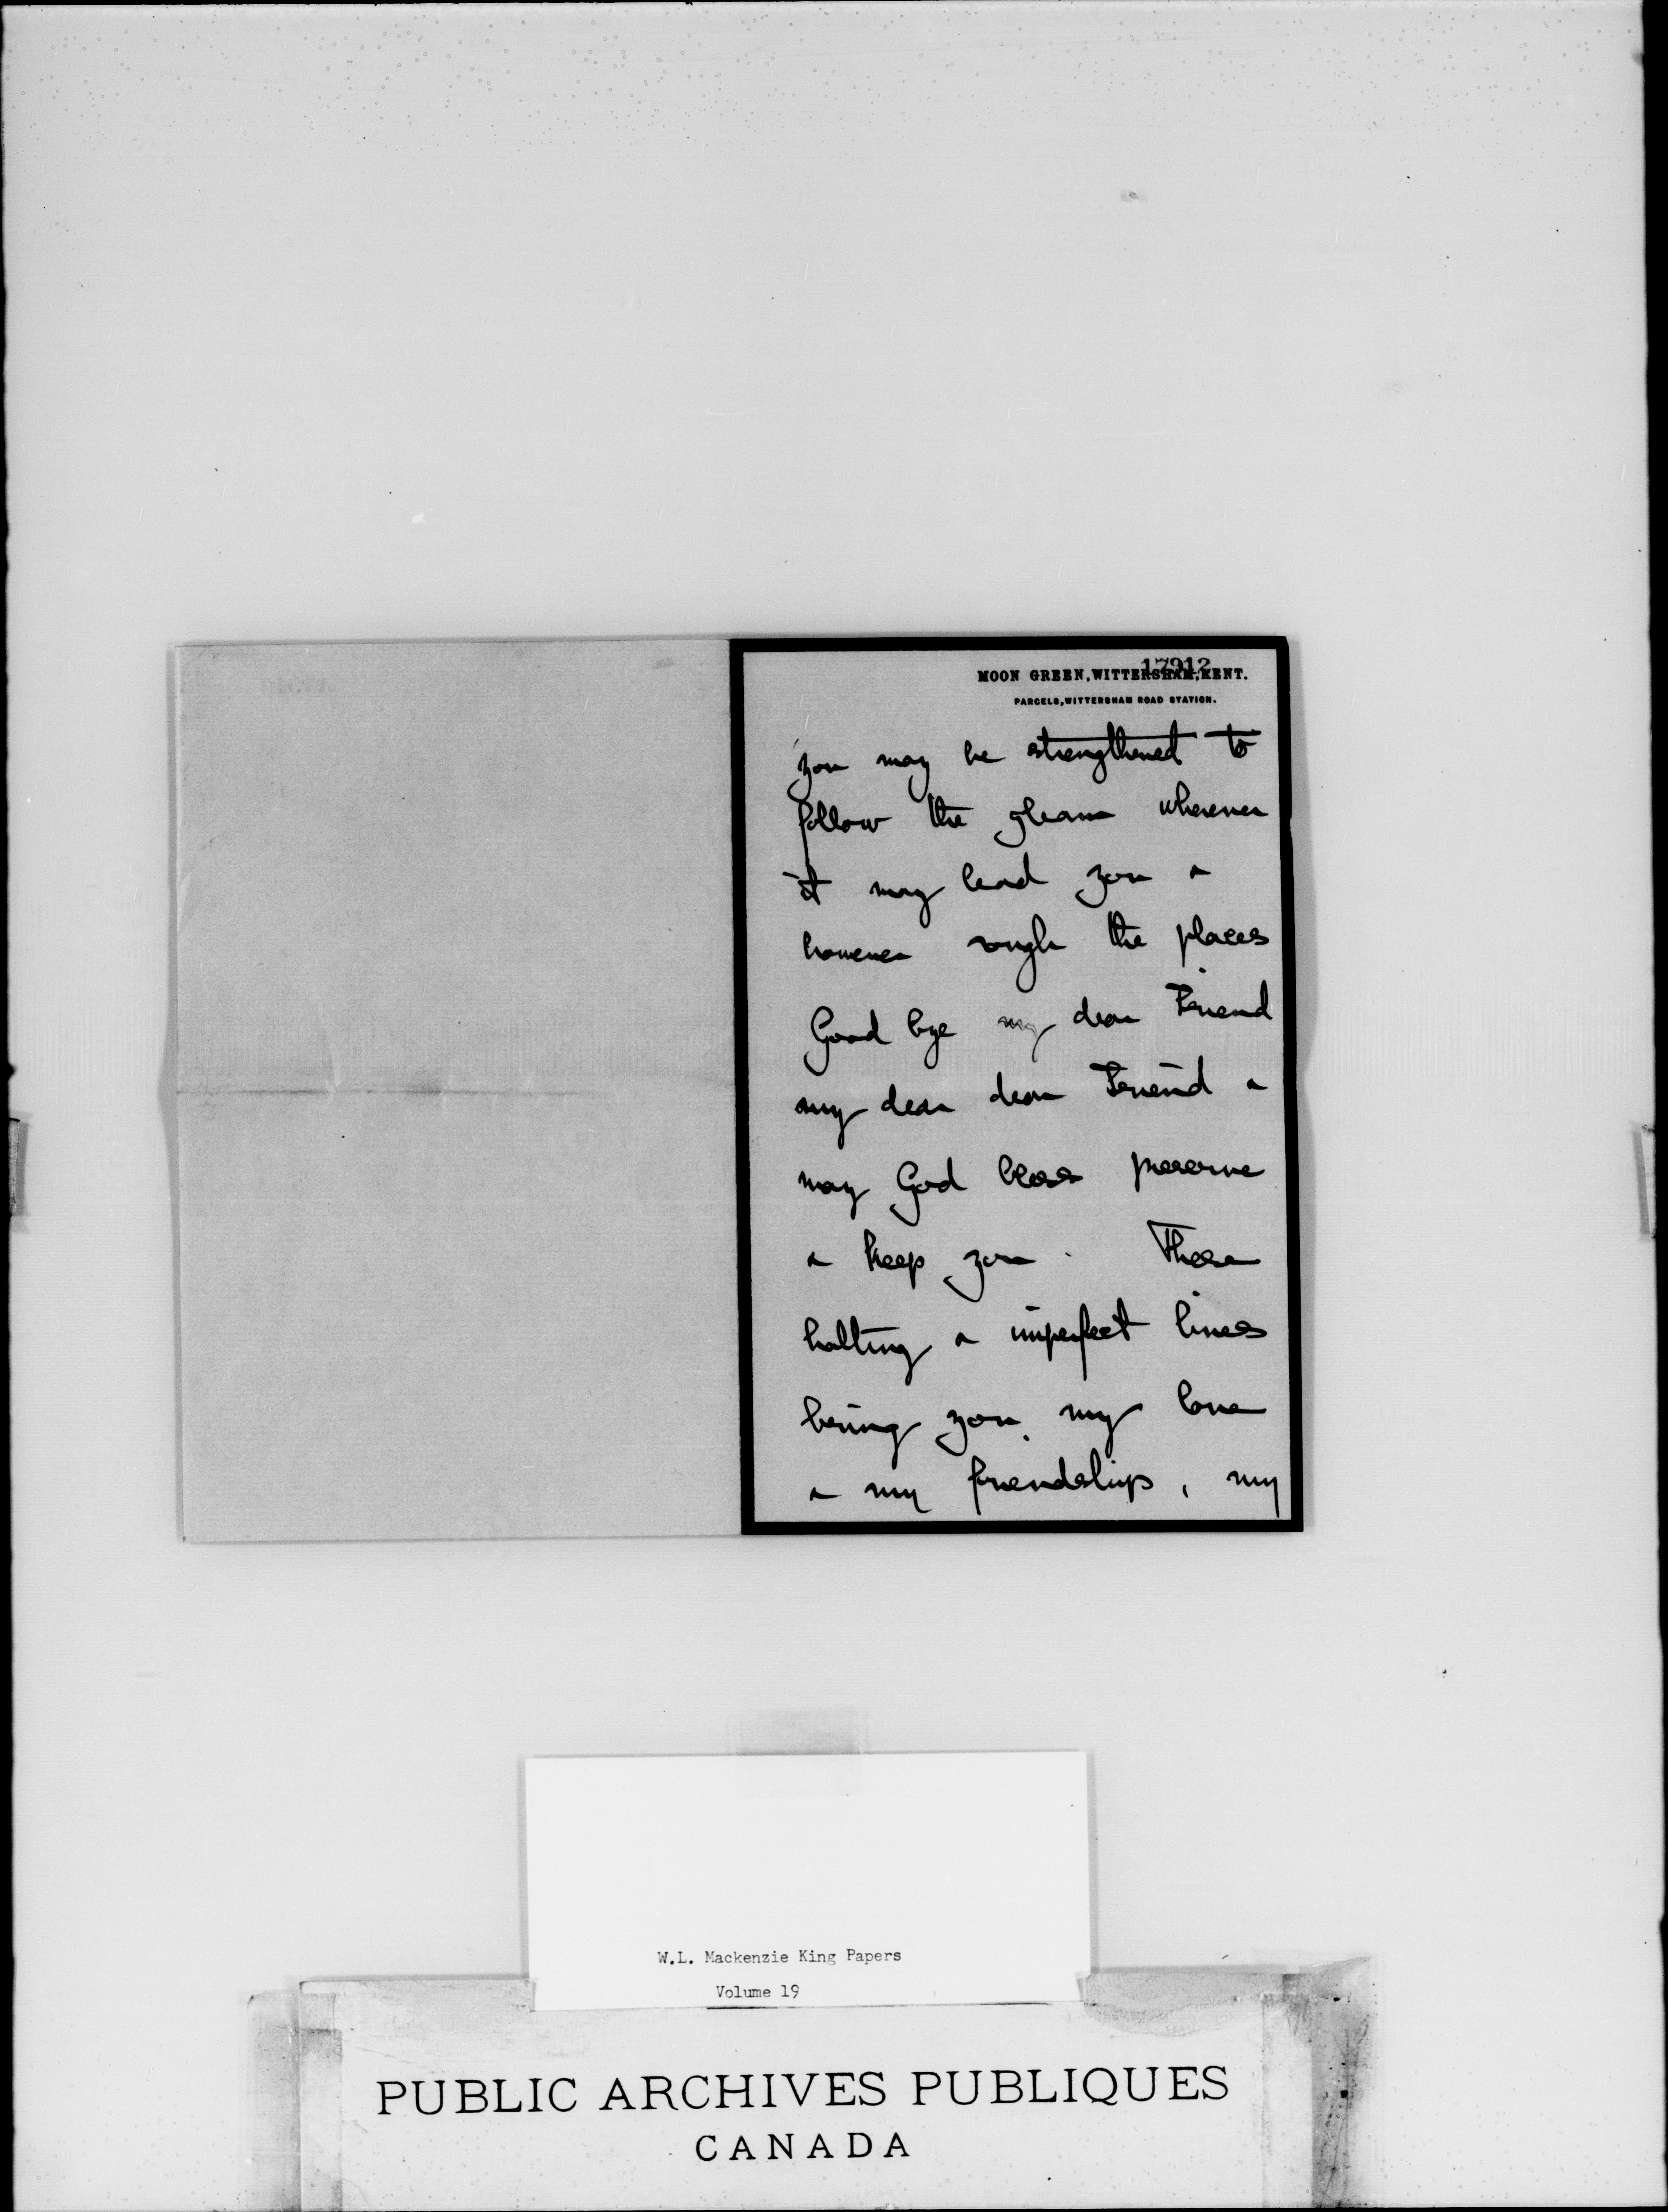 17912
MOON GREEN, WITTERSHAM, KENT.
PARCELS, WITTERSHAM ROAD STATION.
you may be strengthened to
follow the gleam wherever
it may lead you &
however rough the places
Good bye my dear Friend
my dear dear Friend &
may God bless preserve
& keep you. These
halting & imperfect lines
bring you my love
& my friendship, my
W.L. Mackenzie King Papers
Volume 19
PUBLIC ARCHIVES PUBLIQUES
CANADA